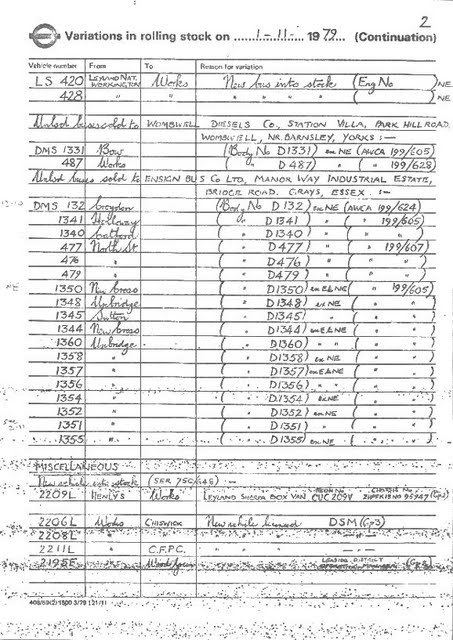 2
Variations in rolling stock on 1-11- 1979 (Continuation)
Vehicle number From To Reason for variation
LS 420 LEYLAND NAT. WORKINGTON Works New bus into stock (Eng No ) NE
428 " " " " " " ( " ) NE
Unlicd buses sold to WOMBWELL DIESELS CO., STATION VILLA, PARK HILL ROAD,
WOMBWELL, NR. BARNSLEY, YORKS :—
DMS 1331 Bow (Body No D1331) ex NE (AWCA 199/605)
487 Works ( " D487) " ( " 199/628)
Unlicd buses sold to ENSIGN BUS CO LTD, MANOR WAY INDUSTRIAL ESTATE,
BRIDGE ROAD. GRAYS, ESSEX. :—
DMS 132 Croydon (Body No D132) ex NE (AWCA 199/624)
1341 Holloway ( " D1341) " ( " 199/605)
1340 Catford ( " D1340) " ( " " )
477 North St ( " D477) " ( " 199/607)
476 " ( " D476) " ( " " )
479 " ( " D479) " ( " " )
1350 New Cross ( " D1350) ex E&NE ( " 199/605)
1348 Uxbridge ( " D1348) ex NE ( " " )
1345 Sutton ( " D1345) " ( " " )
1344 New Cross ( " D1344) ex E&NE ( " " )
1360 Uxbridge ( " D1360) " ( " " )
1358 " ( " D1358) ex NE ( " " )
1357 " ( " D1357) ex E&NE ( " " )
1356 " ( " D1356) " ( " " )
1354 " ( " D1354) ex NE ( " " )
1352 " ( " D1352) ex NE ( " " )
1351 " ( " D1351) " ( " " )
1355 " ( " D1355) ex NE ( " " )
MISCELLANEOUS
New vehicle into stock (SER 750/648) :—
2209L HENLYS Works LEYLAND SHERPA BOX VAN CUC 209V (Gp3)
2206L Works CHISWICK New vehicle licensed DSM (Gp3)
2208L " " " "
2211L " C.F.P.C. "
2195E " Wood Green "